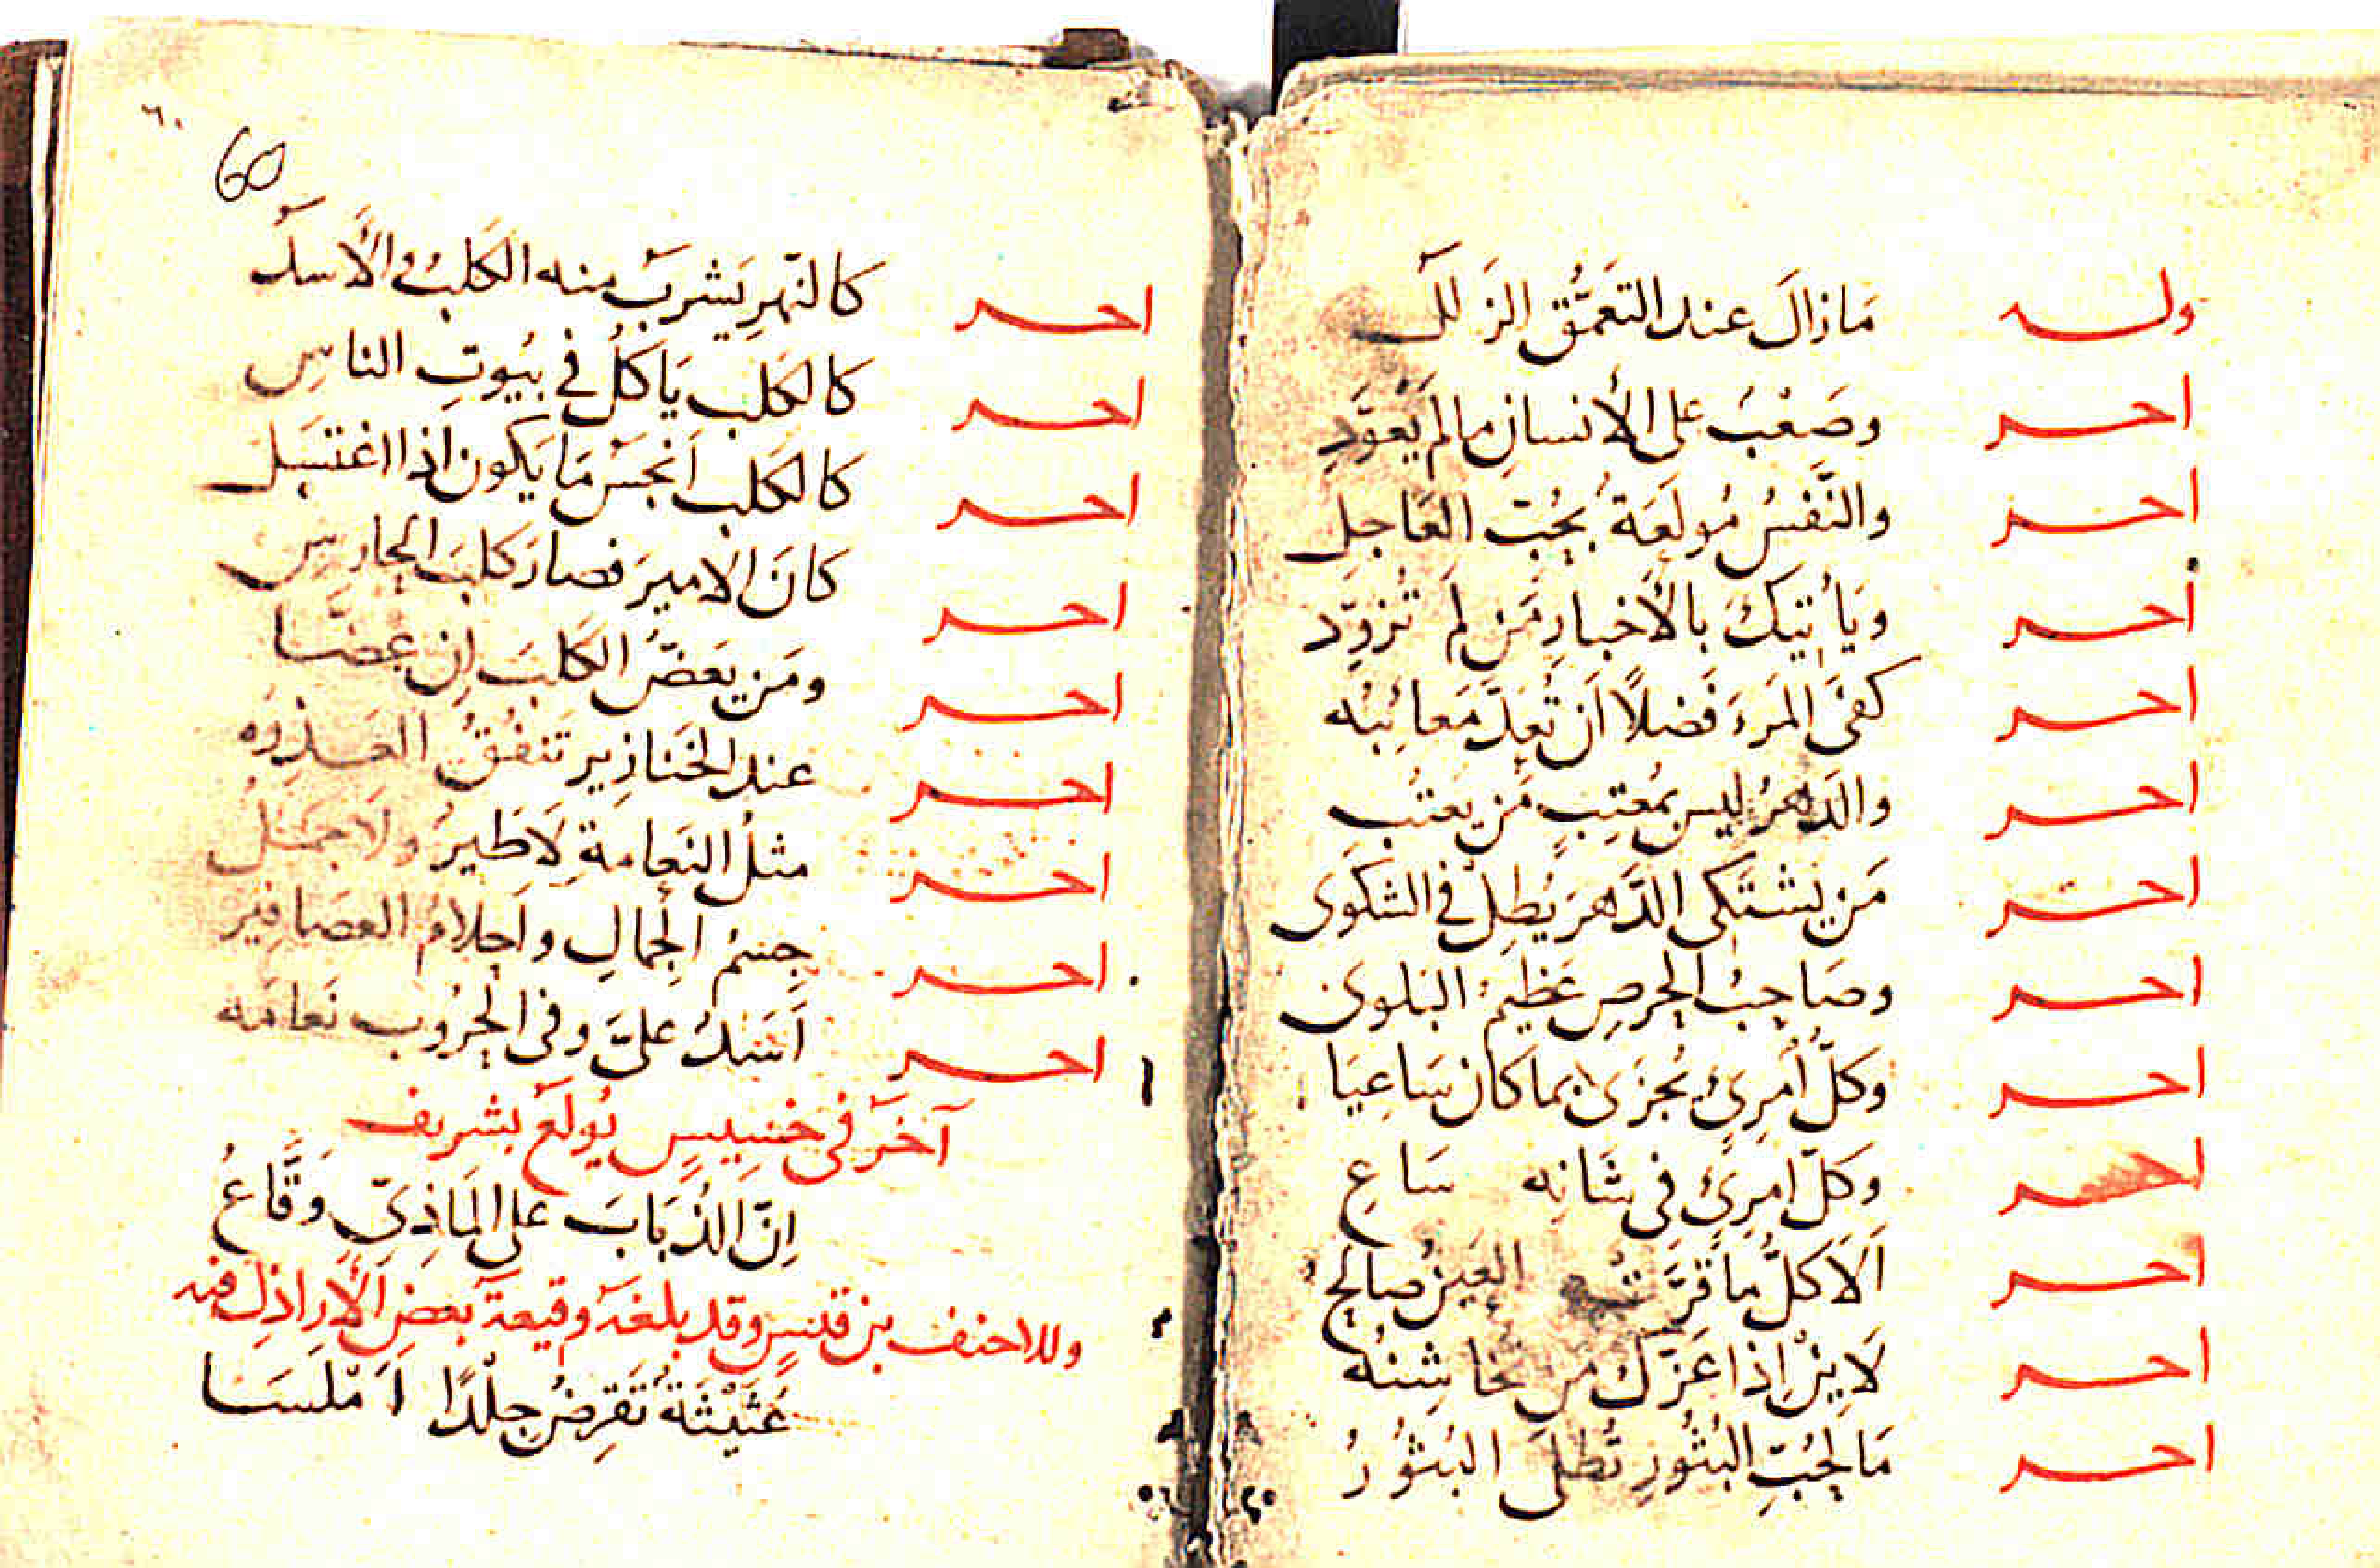 وله مَا زَالَ عند التعَمُّق الزَلَل
اخر وصَعْبٌ على الأنسانِ ما لم يُعَوَّدِ
اخر والنَّفسُ مُولَعَةٌ بحُبّ العَاجِلِ
اخر ويَأتيكَ بالأخبارِ مَن لم تُزوّدِ
اخر كفَى المَرءَ فَضلاً أن تُعَدَّ مَعائبُه
اخر والدَّهرُ ليس بمُعتِبٍ مَن يعتبُ
اخر مَن يَشتَكى الدَّهرَ يُطِل في الشكوَى
اخر وصَاحِبُ الحرصِ عَظيم البَلوى
اخر وكلُّ أمرِئٍ يُجزَى بما كان سَاعِيَا
اخر وكلّ امرِئٍ في شَانِه سَاعِ
اخر ألَا كلُّ ما قَرَّت به العَينُ صالحُ
اخر لَايِنْ إذا عَزّك من تخاشِنُه
اخر مَا لحُبّ البُثُورِ تُطلَى البُثُورُ
٦٠
60
اخر كالنّهرِ يَشربُ منه الكَلبُ والأسدُ
اخر كالكلب يَاكلُ في بيُوتِ الناسِ
اخر كالكلب اَنجسَ مَا يَكون إذا اغتَسَل
اخر كانَ الاميرَ فصارَ كلبَ الحارسِ
اخر ومَن يَعَضُّ الكَلبَ إن عضّا
اخر عند الخَنازِيرِ تَنفُقُ العَذِرَه
اخر مثلُ النَعامةِ لَا طَيرُ ولَا جَمَلُ
اخر جِسْمُ الجمالِ واَحلامُ العصَافير
اخر اَسَدٌ عليَّ وفى الحُرُوب نَعامَه
آخَر في خسِيسٍ يُولَعُ بشريف
إنّ الذُبَابَ على المَاذِيّ وَقَّاعُ
وللاحنف بن قيسٍ وقد بلغهُ وقيعة بعض الأراذل فيه
عُثَيْثَةٌ تَقرِضُ جِلْدًا اَمْلَسَا